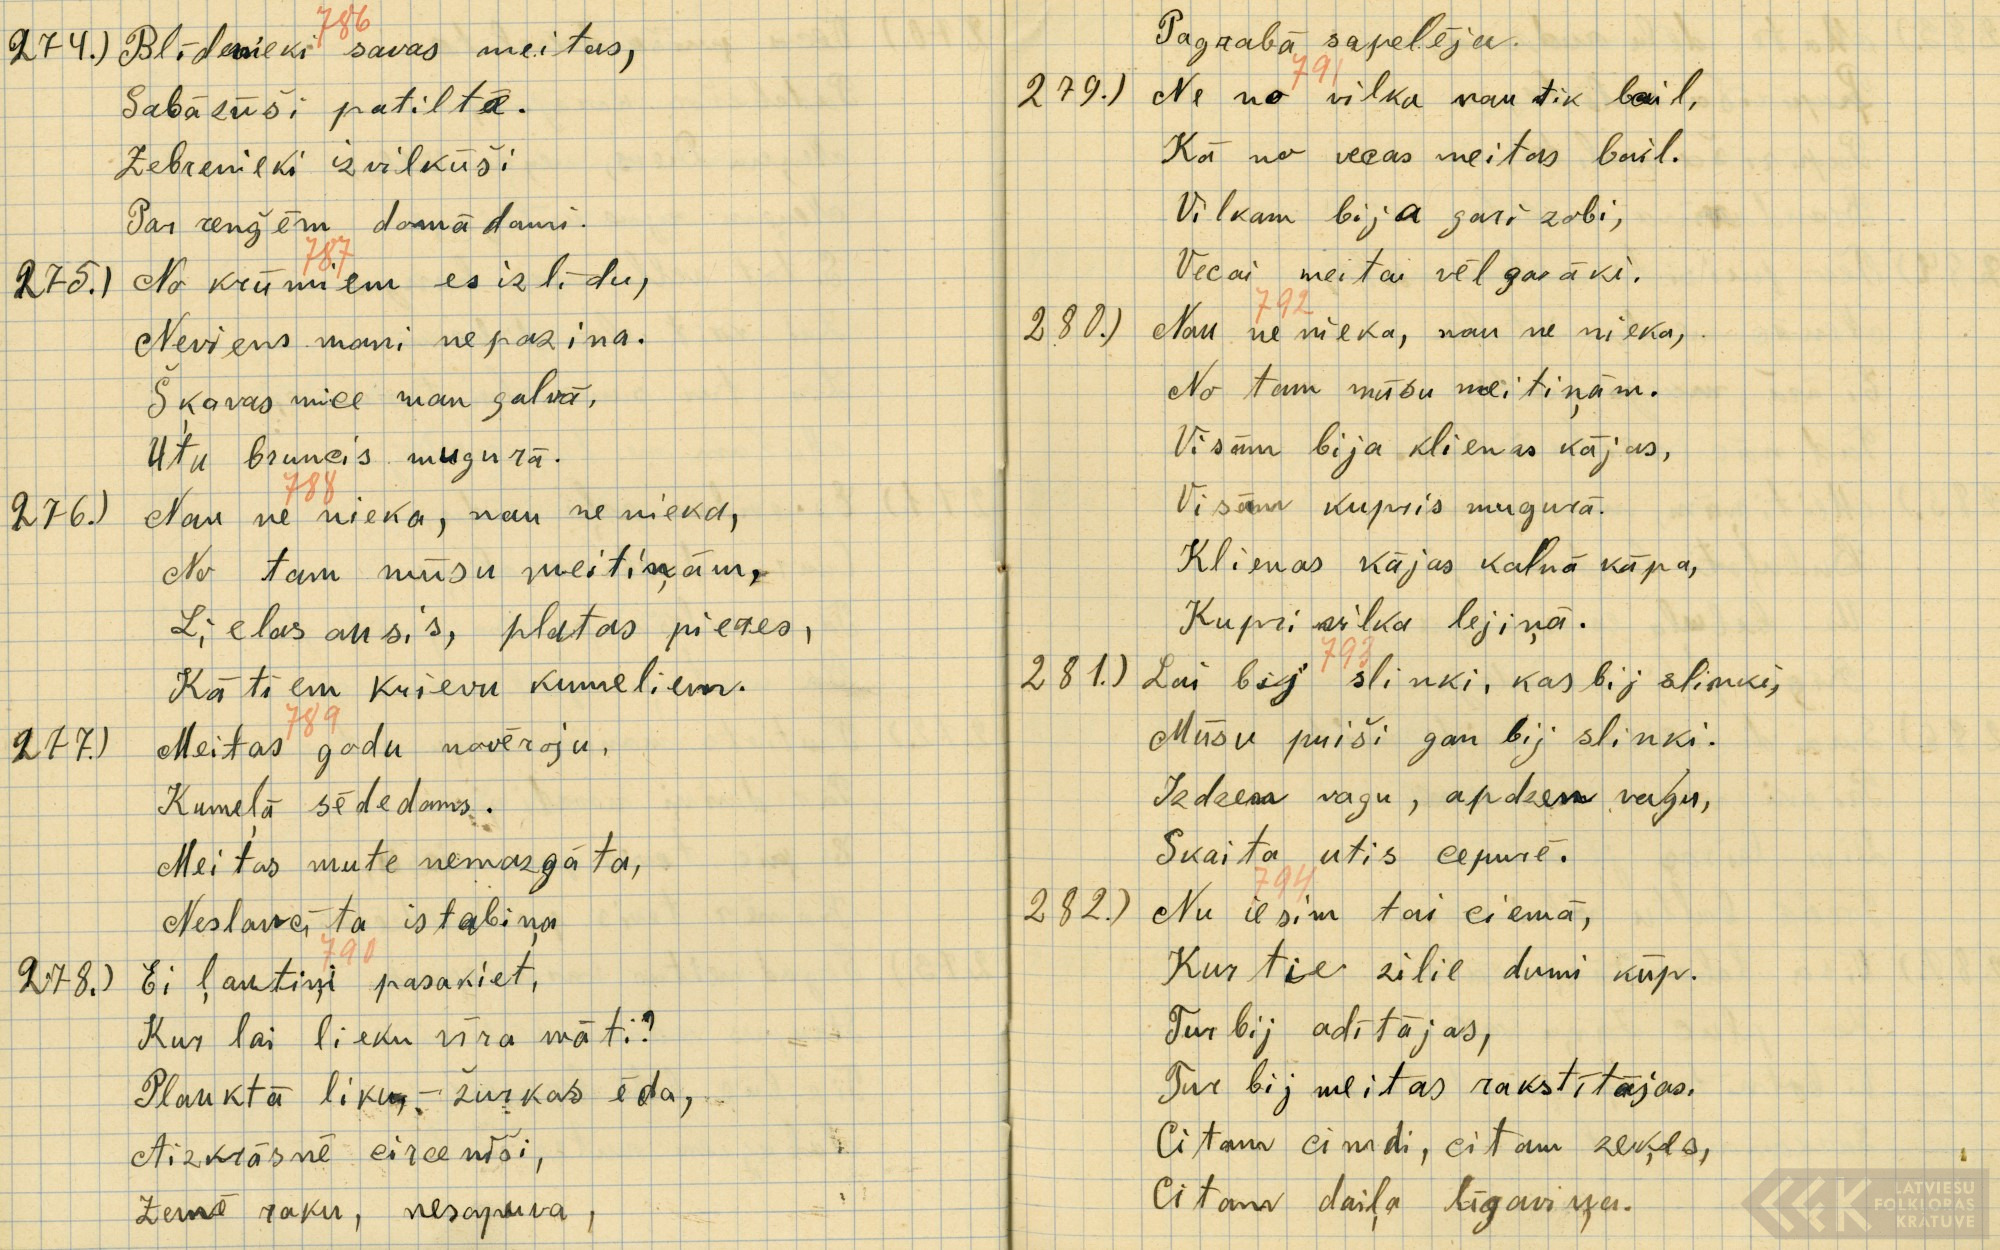 786
274.) Blīdenieki savas meitas,
Sabāzūši patiltē.
Zebrenieki izvilkūši
Par renģēm domādami.
787
275.) No krūmiem es izlīdu,
Neviens mani nepazina.
Šķavas mice man galvā,
Utu bruncis mugurā.
788
276.) Nau ne nieka, nau ne nieka,
No tam mūsu meitiņām,
Ļielas ausis, platas pieres,
Kā tiem krievu kumeliem.
789
277.) Meitas godu novēroju,
Kumeļā sēdedams.
Meitas mute nemazgāta,
Neslaucīta istabiņa
790
278.) Ei ļautiņi pasakiet,
Kur lai lieku vīra māti?
Plauktā liku, – žurkas ēda,
Aizkrāsnē circenīši,
Zemē raku, nesapuva,
Pagrabā sapelēja.
791
279.) Ne no vilka nau tik bail,
Kā no vecas meitas bail.
Vilkam bija gari zobi,
Vecai meitai vēl garāki.
792
280.) Nau ne nieka, nau ne nieka,
No tam mūsu meitiņām.
Visām bija klienas kājas,
Visām kupris mugurā.
Klienas kājas kalnā kāpa,
Kupri vilka lejiņā.
793
281.) Lai bij slinki, kas bij slinki,
Mūsu puiši gan bij slinki.
Izdzen vagu, apdzen vagu,
Skaita utis cepurē.
794
282.) Nu iesim tai ciemā,
Kur tie zilie dumi kūp.
Tur bij adītājas,
Tur bij meitas rakstītājas.
Citam cimdi, citam zeķes,
Citam daiļa līgaviņa.
LATVIEŠU
FOLKLORAS
KRĀTUVE